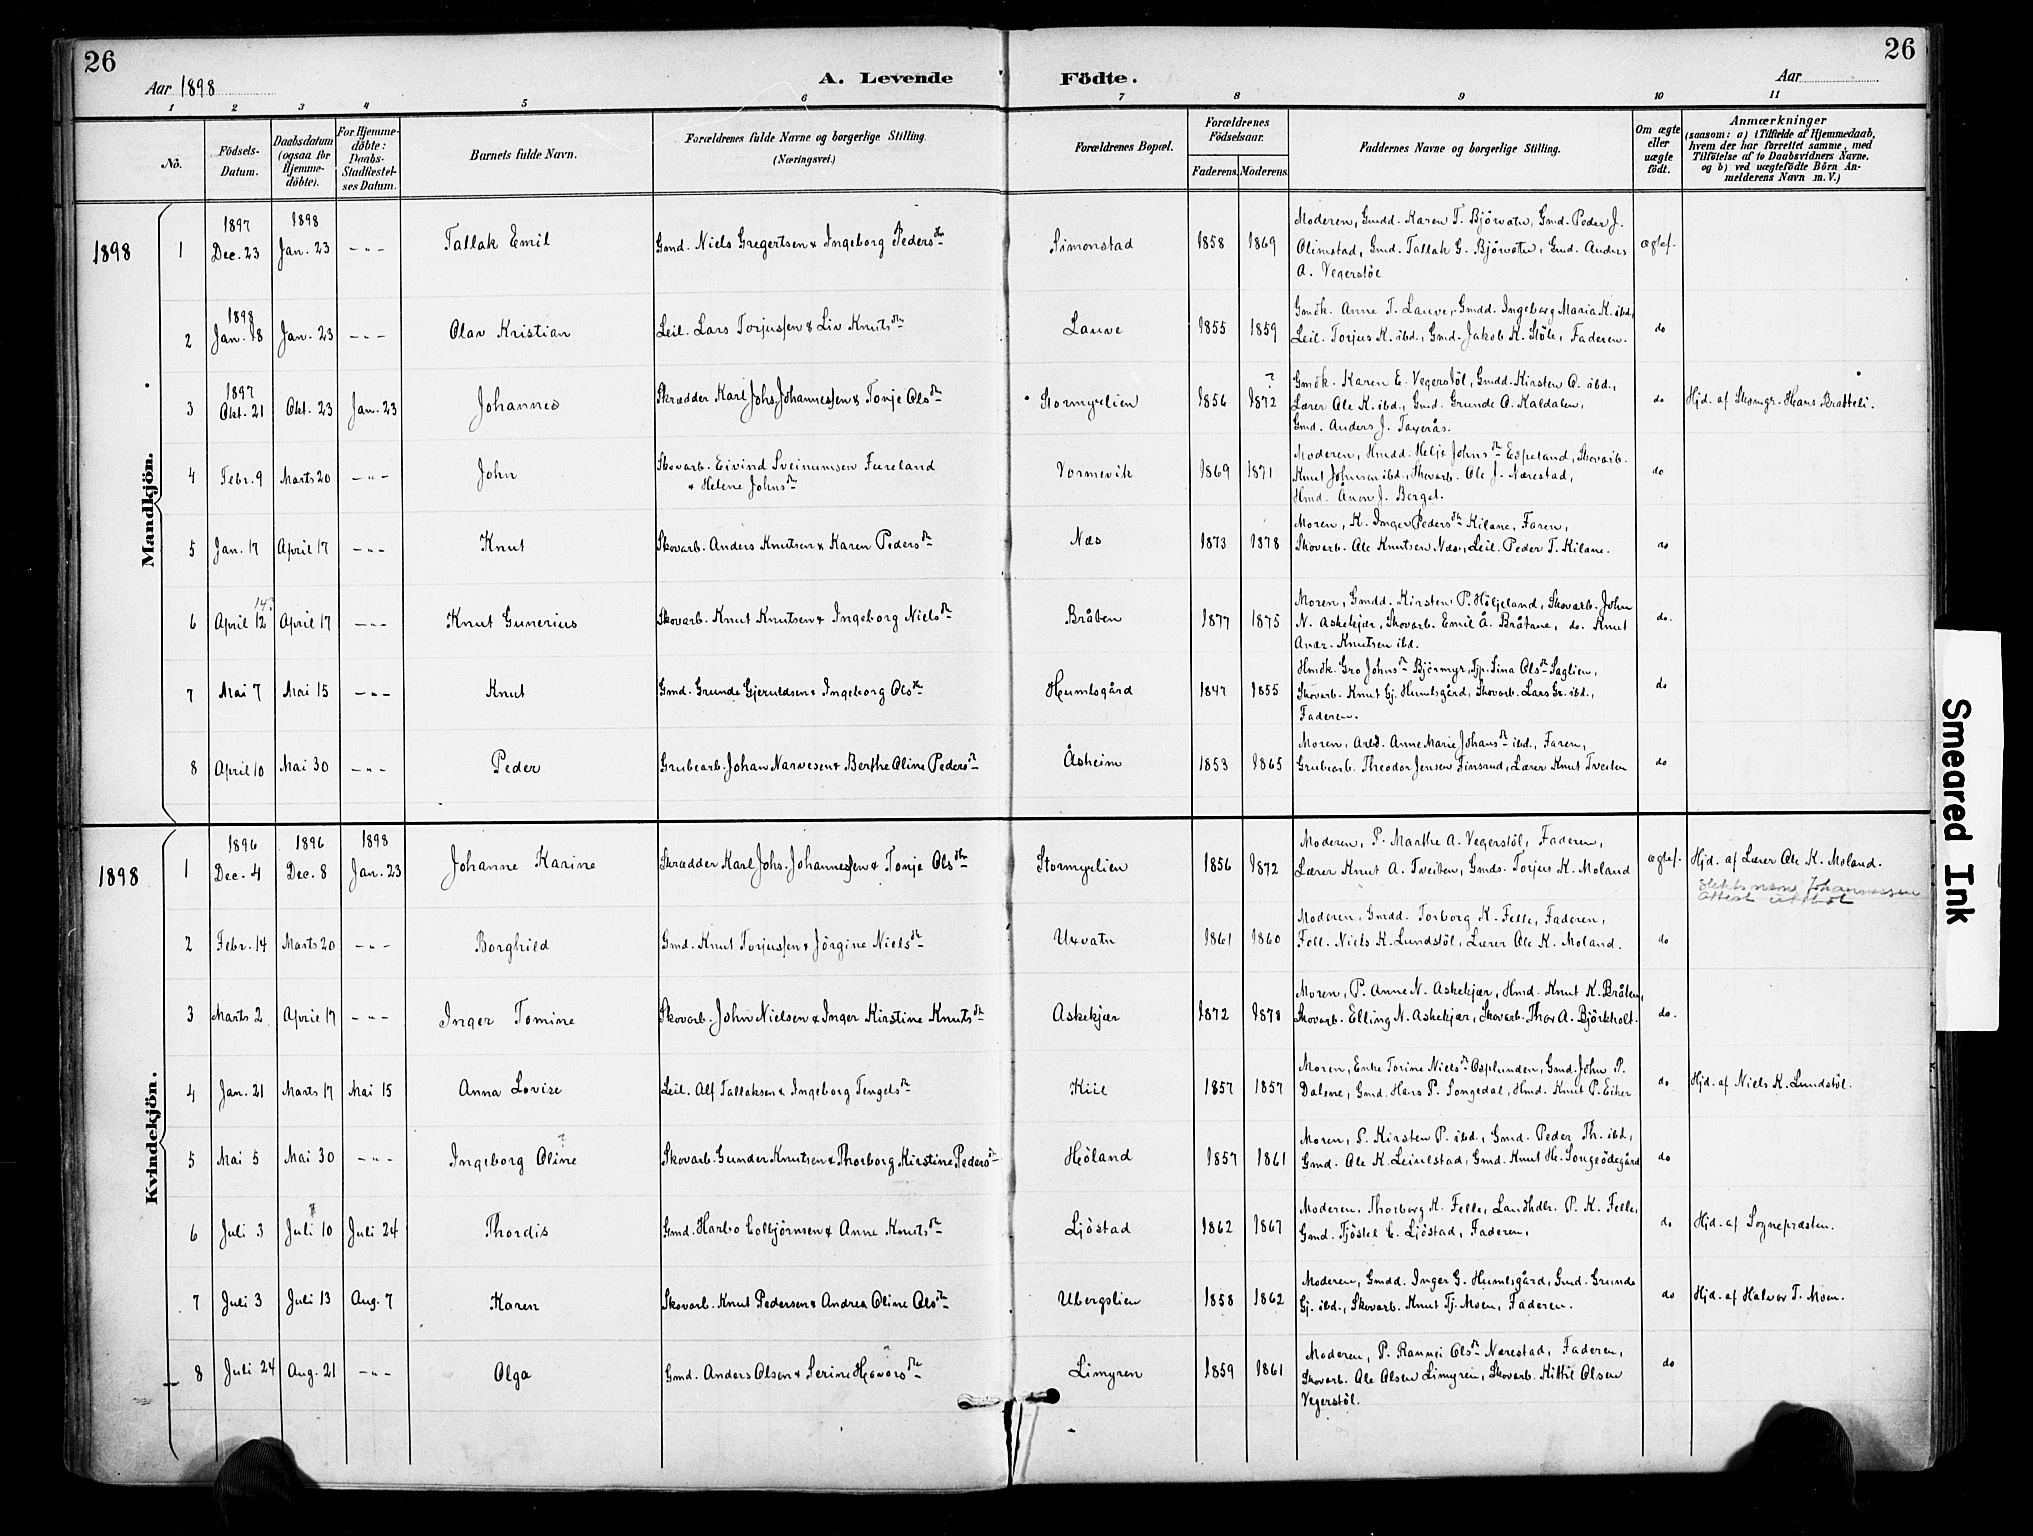 26
26
Aar 1898
A. Levende Födte.
Aar
1 2 3 4 5 6 7 8 9 10 11
No.
Födsels-Datum.
Daabsdatum (ogsaa for Hjemme-döbte).
For Hjemme-döbte: Daabs-Stadfæstel-ses Datum.
Barnets fulde Navn.
Forældrenes fulde Navne og borgerlige Stilling. (Næringsvei.)
Forældrenes Bopæl.
Forældrenes Födselsaar.
Faderens. Moderens.
Faddernes Navne og borgerlige Stilling.
Om ægte eller uægte födt.
Anmærkninger
(saasom: a) i Tilfælde af Hjemmedaab, hvem der har forrettet samme, med Tilföielse af to Daabsvidners Navne, og b) ved uægtefödte Börn An-melderens Navn m. V.)
Mandkjön.
1898 1 1897 Dec. 23 1898 Jan. 23 -"- Tallak Emil Gmd. Niels Gregertsen & Ingeborg Pedersdtr Simonstad 1858 1869 Moderen, Gmdd. Karen T. Bjørvatn, Gmd. Peder J.
Olimstad, Gmd. Tallak G. Bjørvatn, Gmd. Anders
A. Vegerstöl ægtef.
2 1898 Jan. 18 Jan. 23 -"- Olav Kristian Leil. Lars Torjussen & Liv Knutsdtr Lauve 1855 1859 Gmdk. Anne T. Lauve, Gmdd. Ingeborg Maria K. ibd,
Leil. Torjus K. ibd., Gmd. Jakob K. Stöle, Faderen. do
3 1897 Okt. 21 Okt. 23 Jan. 23 Johannes Skrædder Karl Johs. Johannessen & Tonje Olsdtr Stormyrlien 1856 ? 1872 Gmdk. Karen E. Vegerstöl, Gmdd. Kirsten O. ibd.,
Lærer Ole K. ibd., Gmd. Grunde O. Kaldalen,
Gmd. Anders J. Taxerås. do Hjd. af Skomgr. Hans Bratteli.
4 Febr. 9 Marts 20 -"- John Skovarb. Eivind Sveinumsen Fureland
& Helene Johnsdtr Vormevik 1869 1871 Moderen, Hmdd. Helje Johnsdtr Espeland, Skovarb.
Knut Johnsen ibd., Skovarb. Ole J. Nærestad,
Hmd. Ånon J. Berget. do
5 Jan. 17 April 17 -"- Knut Skovarb. Anders Knutsen & Karen Pedersdtr Næs 1873 1878 Moren, K. Inger Pedersdtr Kilane, Faren,
Skovarb. Ole Knutsen Næs, Leil. Peder T. Kilane. do
6 14? April 12 April 17 -"- Knut Gunerius Skovarb. Knut Knutsen & Ingeborg Nielsdtr Bråten 1877 1875 Moren, Gmdd. Kirsten P. Höljeland, Skovarb. John
N. Askekjær, Skovarb. Emil Å. Bråtane, do. Knut
Andr. Knutsen ibd. do.
7 Mai 7 Mai 15 -"- Knut Gmd. Grunde Gjeruldsen & Ingeborg Olsdtr Humlsgård 1847 1855 Hmdk. Gro Johnsdtr Björmyr, Tjp. Sina Olsdtr Saglien,
Skovarb. Knut Gj. Humlsgård, Skovarb. Lars Gr. ibd.,
Faderen. do
8 April 10 Mai 30 -"- Peder Grubearb. Johan Narvesen & Berthe Oline Pedersdtr Åsheim 1853 1865 Moren, Arbd. Anne Marie Johansdtr ibd., Faren,
Grubearb. Theodor Jensen Finsrud, Lærer Knut Tveiten do
Kvindekjön.
1898 1 1896 Dec. 4 1896 Dec. 8 1898 Jan. 23 Johanne Karine Skrædder Karl Johs. Johannessen & Tonje Olsdtr Stormyrlien 1856 1872 Moderen, P. Marthe A. Vegerstöl, Faderen,
Lærer Knut A. Tveiten, Gmds. Torjus K. Moland ægtef. Hjd. af Lærer Ole K. Moland.
Slektsnavn Johannessen
Attest utstedt
2 Febr. 14 Marts 20 -"- Borghild Gmd. Knut Torjussen & Jörgine Nielsdtr Uxvatn 1861 1860 Moderen, Gmdd. Torborg K. Felle, Faderen,
Foll. Niels K. Lundstöl, Lærer Ole K. Moland. do
3 Marts 2 April 17 -"- Inger Tomine Skovarb. John Nielsen & Inger Kirstine Knutsdtr Askekjær 1872 1878 Moren, P. Anne N. Askekjær, Hmd. Knut K. Bråten,
Skovarb. Elling N. Askekjær, Skovarb. Thor A. Björkholt. do.
4 Jan. 21 Marts 17 Mai 15 Anna Lovise Leil. Alf Tallaksen & Ingeborg Tengelsdtr Kiil 1857 1857 Moren, Enke Torine Nielsdtr Osplunden, Gmd. John P.
Dalene, Gmd. Hans P. Songedal, Hmd. Knut P. Eiker do Hjd. af Niels K. Lundstöl.
5 Mai 5 Mai 30 -"- Ingeborg Oline ? Skovarb. Gunder Knutsen & Thorborg Kirstine Pedersdtr Höland 1857 1861 Moren, P. Kirsten P. ibd., Gmd. Peder Th. ibd,
Gmd. Ole K. Leinlstad, Gmd. Knut H. Songeödegård do
6 Juli 3 Juli 10 Juli 24 Thordis Gmd. Harbo Colbjörnsen & Anne Knutsdtr Ljöstad 1862 1867 Moderen, Thorborg K. Felle, Landhdlr. P. K. Felle,
Gmd. Tjöstel C. Ljöstad, Faderen, do Hjd. af Sognepræsten.
7 Juli 3 Juli 13 Aug. 7 Karen Skovarb. Knut Pedersen & Andrea Oline Olsdtr Ubergslien 1858 1862 Moderen, Gmdd. Inger G. Humlsgård, Gmd. Grunde
Gj. ibd., Skovarb. Knut Tj. Moen, Faderen. do Hjd. af Halvor T. Moen.
8 Juli 24 Aug. 21 -"- Olga Gmd. Anders Olsen & Serine Havorsdtr Limyren 1859 1861 Moderen, P. Rannei Olsdtr Nærestad, Faderen,
Skovarb. Ole Olsen Limyren, Skovarb. Kittil Olsen
Vegerstöl. do
Smeared Ink